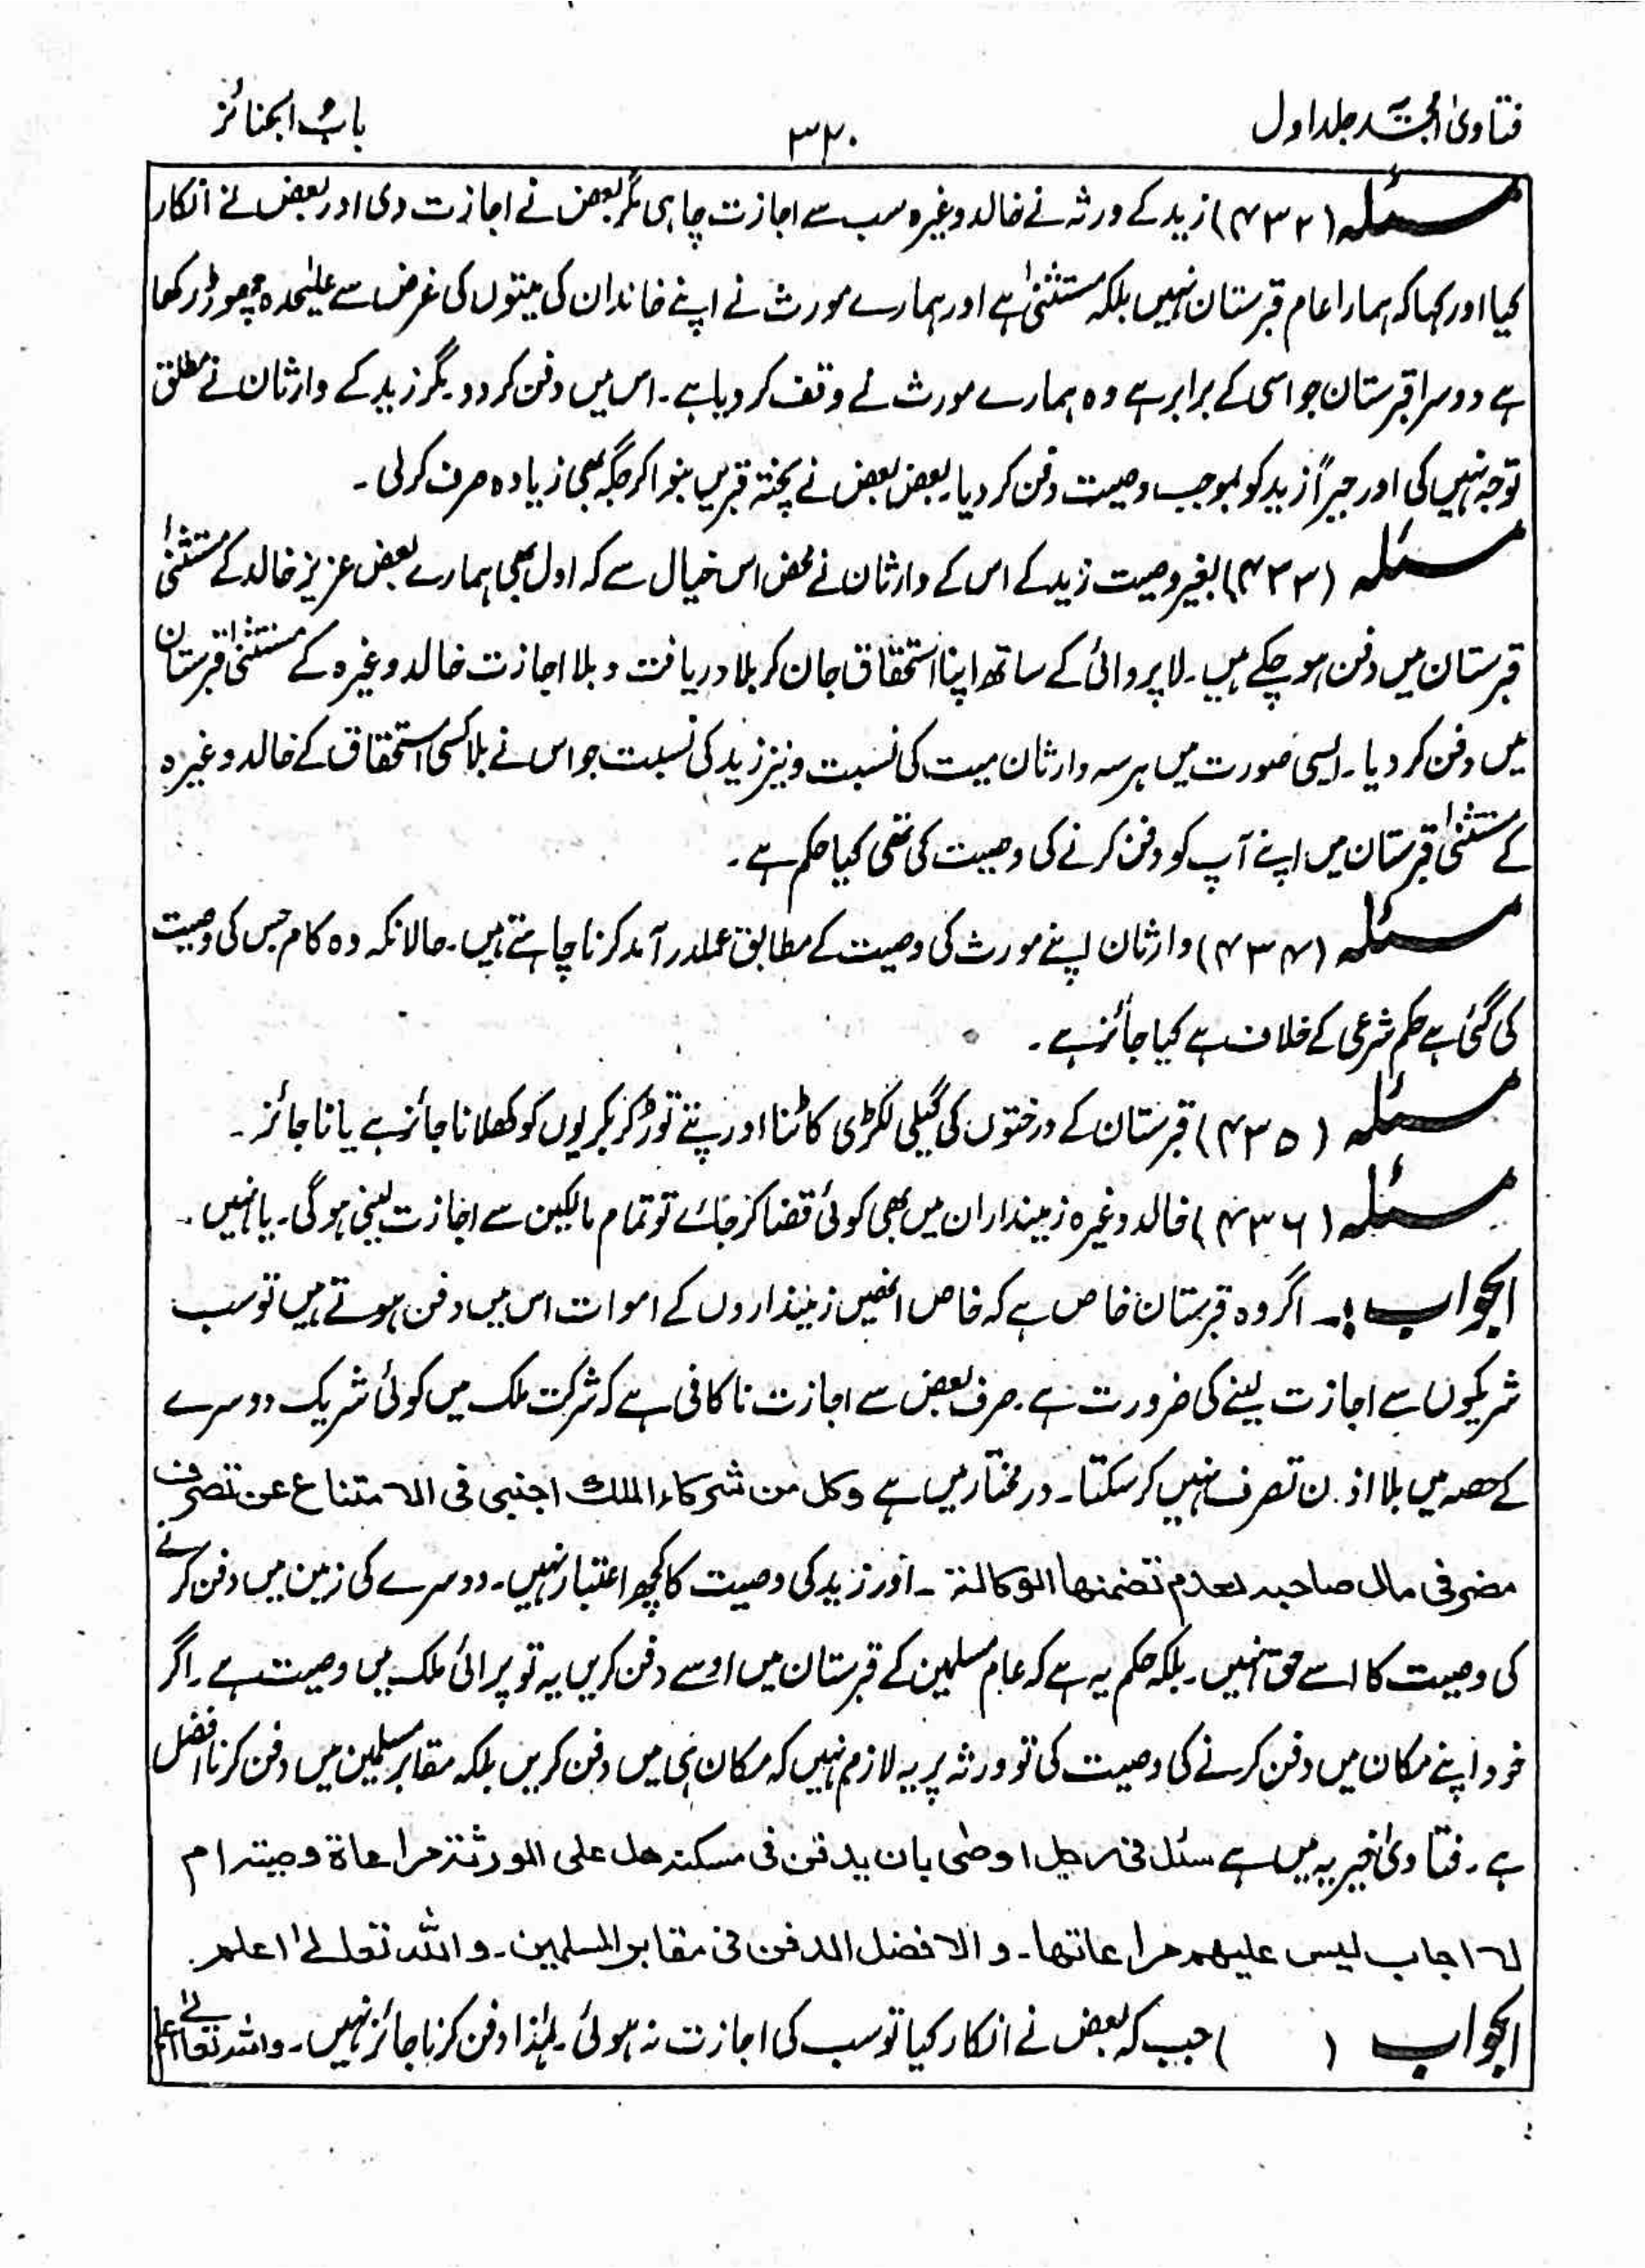 فتاویٰ امجدیہ جلد اول
۳۲۰
باب الجنائز
مسئلہ (۴۳۲) زید کے ورثہ نے خالد وغیرہ سب سے اجازت چاہی مگر بعض نے اجازت دی اور بعض نے انکار
کیا اور کہا کہ ہمارا عام قبرستان نہیں بلکہ مستثنیٰ ہے اور ہمارے مورث نے اپنے خاندان کی میتوں کی غرض سے علیٰحدہ چھوڑ رکھا
ہے دوسرا قبرستان جو اسی کے برابر ہے وہ ہمارے مورث نے وقف کر دیا ہے۔ اس میں دفن کر دو۔ مگر زید کے وارثان نے مطلق
توجہ نہیں کی اور جبراً زید کو بموجب وصیت دفن کر دیا۔ بعض بعض نے پختہ قبریں بنوا کر جگہ بھی زیادہ صرف کر لی۔
مسئلہ (۴۳۳) بغیر وصیت زید کے اس کے وارثان نے محض اس خیال سے کہ اول بھی ہمارے بعض عزیز خالد کے مستثنیٰ
قبرستان میں دفن ہو چکے ہیں۔ لا پروائی کے ساتھ اپنا استحقاق جان کر بلا دریافت و بلا اجازت خالد وغیرہ کے مستثنیٰ قبرستان
میں دفن کر دیا۔ ایسی صورت میں ہر سہ وارثان میت کی نسبت و نیز زید کی نسبت جو اس نے بلا کسی استحقاق کے خالد وغیرہ
کے مستثنیٰ قبرستان میں اپنے آپ کو دفن کرنے کی وصیت کی تھی کیا حکم ہے۔
مسئلہ (۴۳۴) وارثان اپنے مورث کی وصیت کے مطابق عملدرآمد کرنا چاہتے ہیں۔ حالانکہ وہ کام جس کی وصیت
کی گئی ہے حکم شرعی کے خلاف ہے کیا جائز ہے۔
مسئلہ (۴۳۵) قبرستان کے درختوں کی گیلی لکڑی کاٹنا اور پتے توڑ کر بکریوں کو کھلانا جائز ہے یا نا جائز۔
مسئلہ (۴۳۶) خالد وغیرہ زمینداران میں بھی کوئی قضا کر جائے تو تمام مالکین سے اجازت لینی ہوگی۔ یا نہیں۔
الجواب :۔ اگر وہ قبرستان خاص ہے کہ خاص انھیں زمینداروں کے اموات اس میں دفن ہوتے ہیں تو سب
شریکوں سے اجازت لینے کی ضرورت ہے۔ صرف بعض سے اجازت ناکافی ہے کہ شرکت ملک میں کوئی شریک دوسرے
کے حصہ میں بلا اذن تصرف نہیں کر سکتا۔ در مختار میں ہے وکل من شرکاء الملک اجنبی فی الامتناع عن تصرف
مضر فی مال صاحبہ لعدم تضمنھا الوکالۃ۔ اور زید کی وصیت کا کچھ اعتبار نہیں۔ دوسرے کی زمین میں دفن کرنے
کی وصیت کا اسے حق نہیں۔ بلکہ حکم یہ ہے کہ عام مسلمین کے قبرستان میں اوسے دفن کریں یہ تو پرائی ملک میں وصیت ہے۔ اگر
خود اپنے مکان میں دفن کرنے کی وصیت کی تو ورثہ پر یہ لازم نہیں کہ مکان ہی میں دفن کریں بلکہ مقابر مسلمین میں دفن کرنا افضل
ہے۔ فتاویٰ خیریہ میں ہے سئل فی رجل اوصیٰ بان یدفن فی مسکنہ ھل علی الورثۃ مراعاۃ وصیتہ ام
لا؟ اجاب لیس علیھم مراعاتھا۔ و الافضل الدفن فی مقابر المسلمین۔ و اللہ تعالیٰ اعلم۔
الجواب ( ) جب کہ بعض نے انکار کیا تو سب کی اجازت نہ ہوئی۔ لہٰذا دفن کرنا جائز نہیں۔ واللہ تعالیٰ اعلم